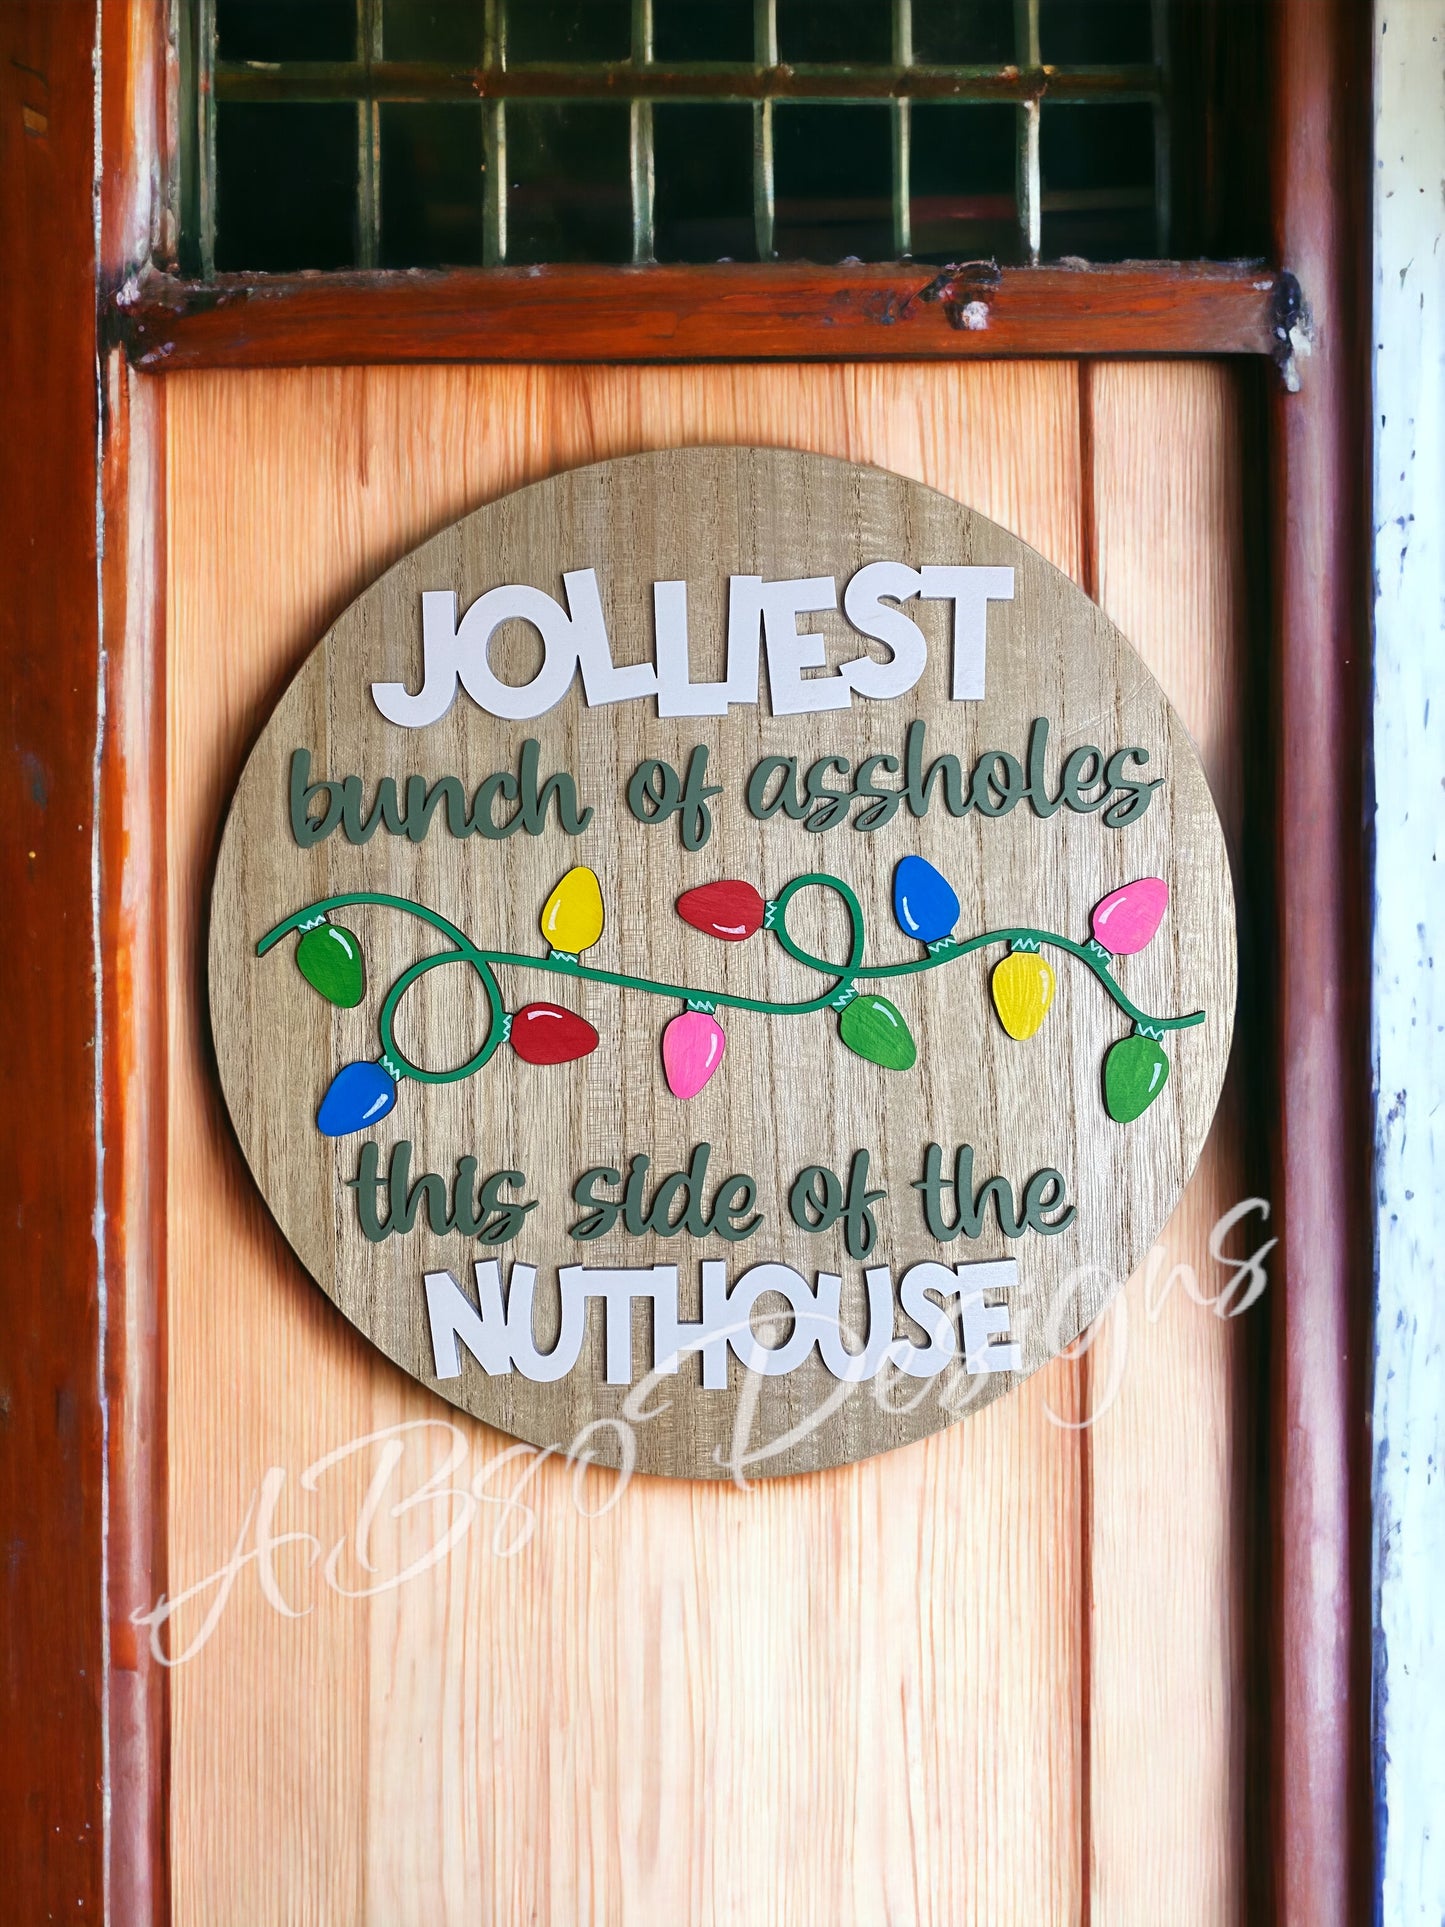 JOLLIEST
bunch of assholes
this side of the
NUTHOUSE
AB80 Designs